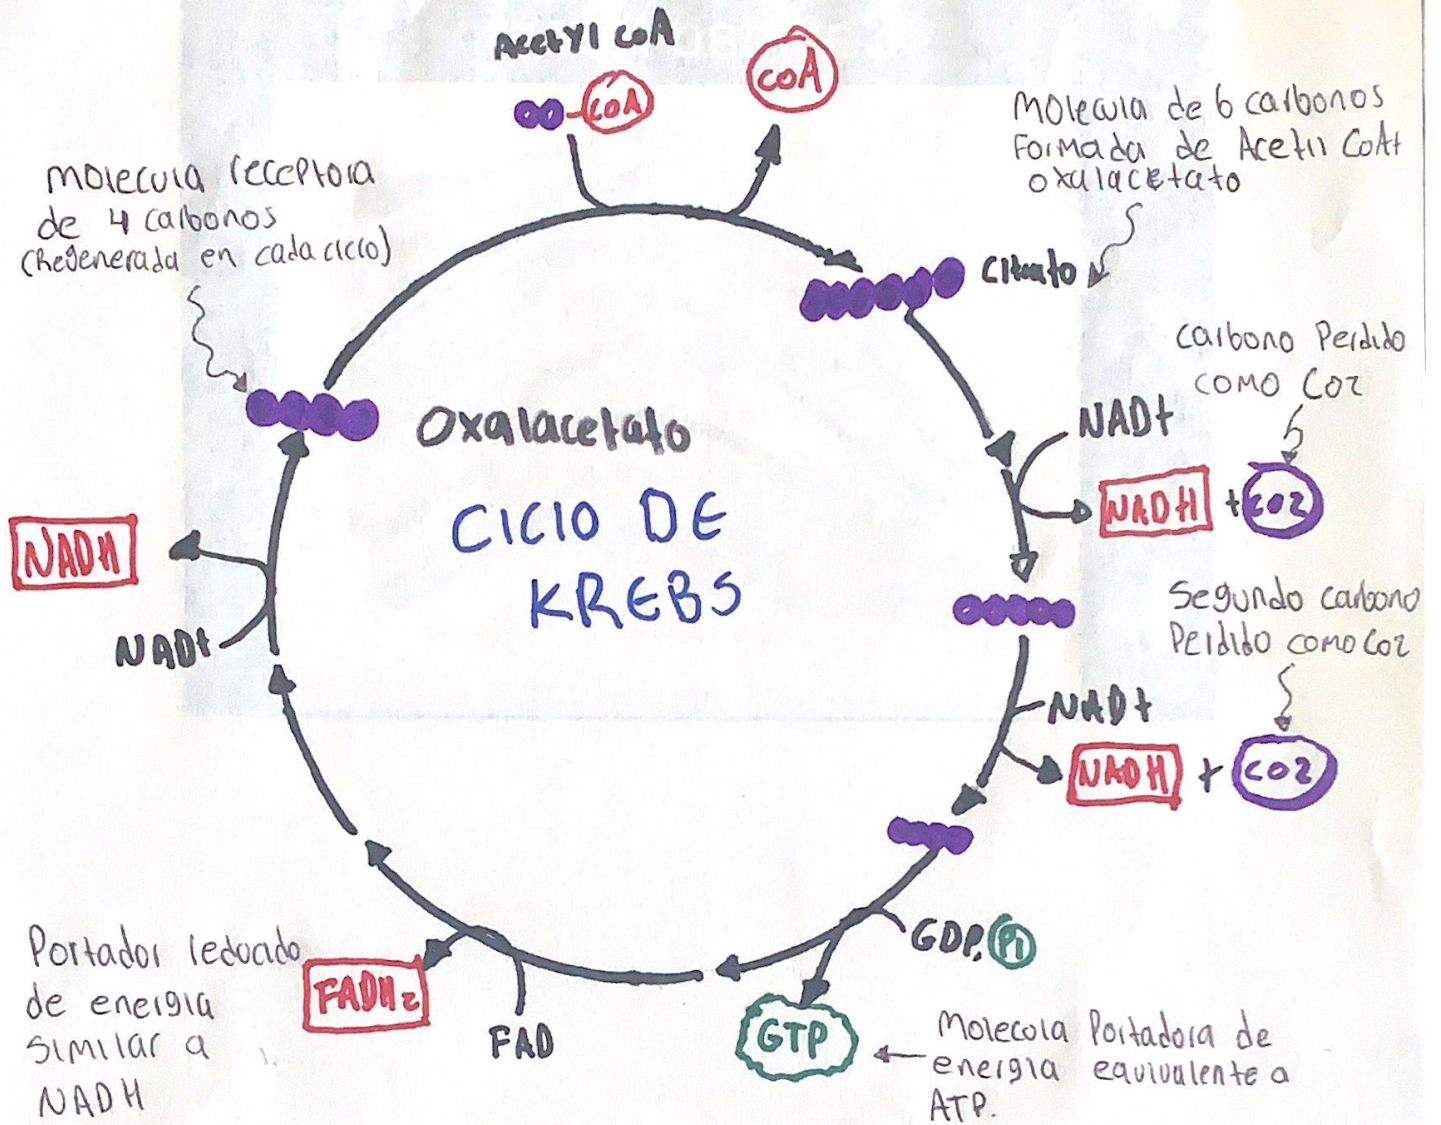 Acetyl CoA
CoA
CoA
Molecula de 6 carbonos
Formada de Acetil CoA+
oxalacetato
Molecula receptora
de 4 carbonos
(Regenerada en cada ciclo)
Citrato
Carbono Perdido
como CO2
NAD+
NADH + CO2
Oxalacetato
CICLO DE
KREBS
NADH
NAD+
Segundo carbono
Perdido como CO2
NAD+
NADH + CO2
GDP, Pi
GTP
Molecola Portadora de
energia equivalente a
ATP.
Portador reducido
de energia
similar a
NADH
FADH2
FAD